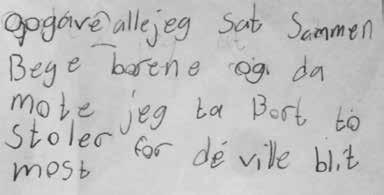 gogavé alle jeg Sat Sammen
Bege barene og da
mote jeg ta Bort to
Stoler for dé ville blit
most